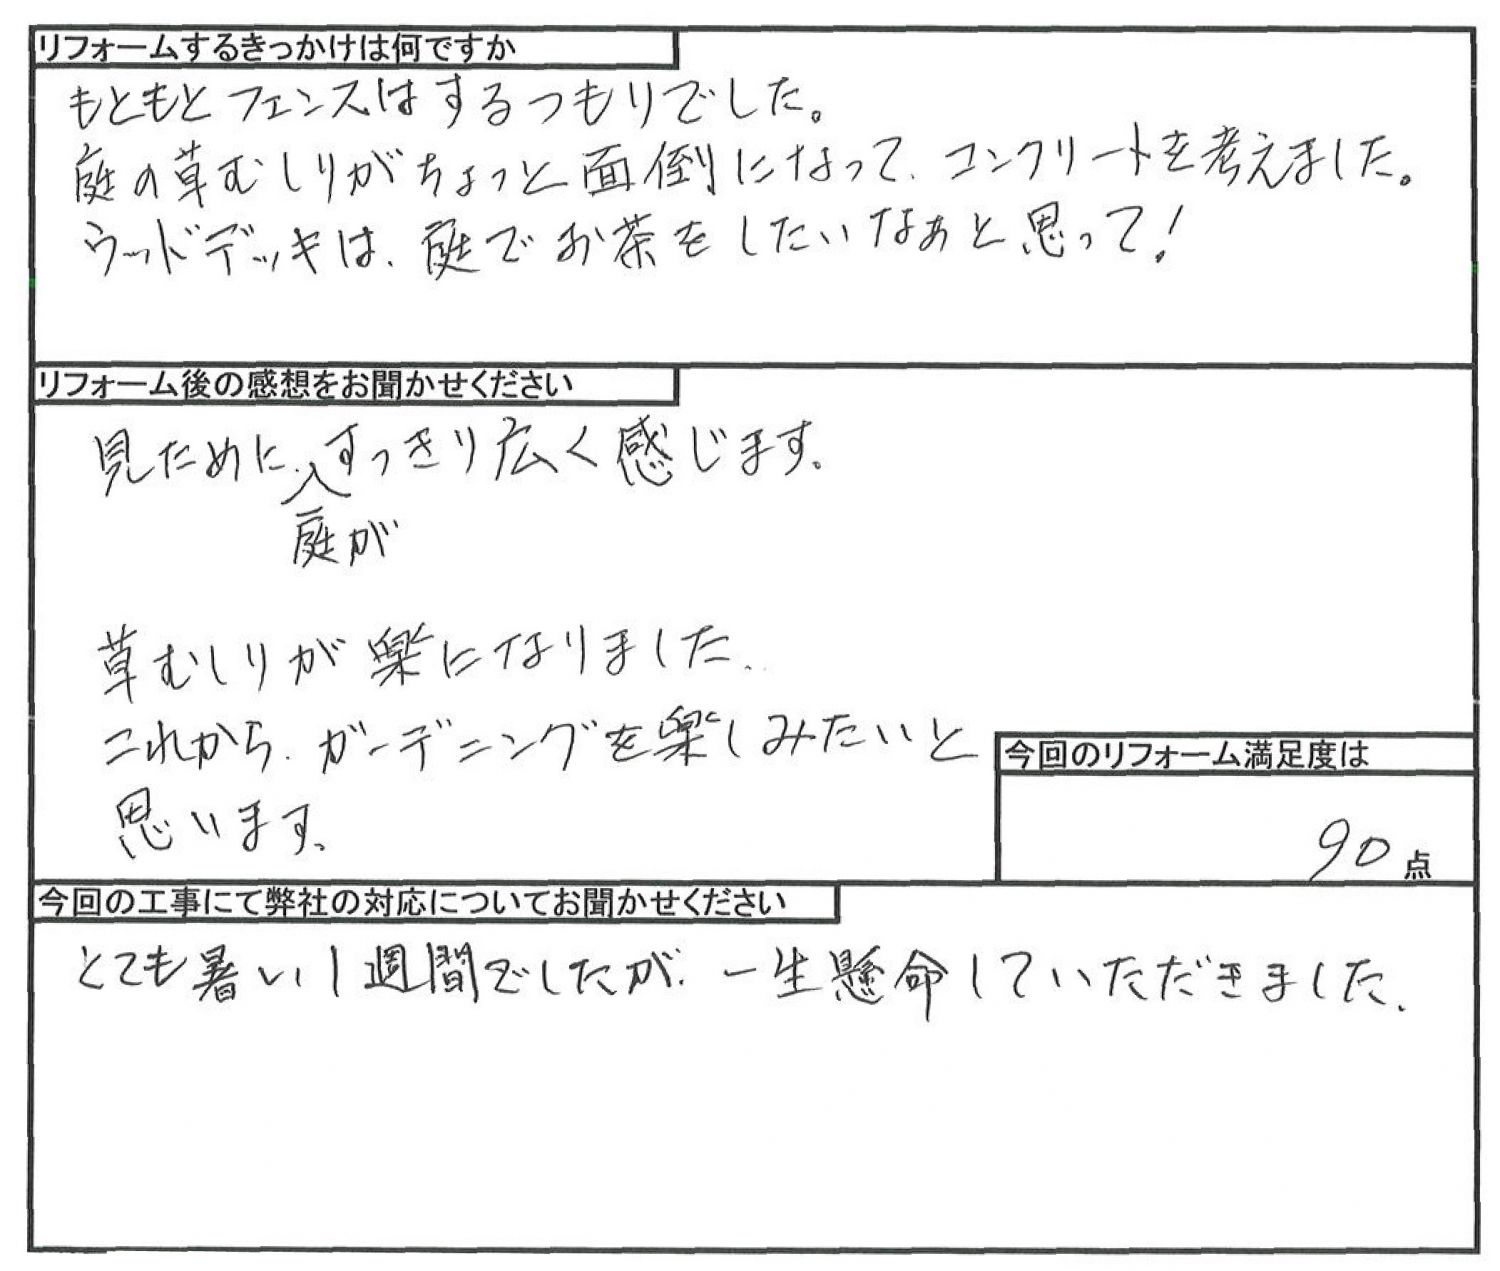 リフォームするきっかけは何ですか
もともとフェンスはするつもりでした。
庭の草むしりがちょっと面倒になって、コンクリートを考えました。
ウッドデッキは、庭でお茶をしたいなぁと思って!
リフォーム後の感想をお聞かせください
見ために、すっきり広く感じます。
庭が
草むしりが楽になりました。
これから、ガーデニングを楽しみたいと
思います。
今回のリフォーム満足度は
90点
今回の工事にて弊社の対応についてお聞かせください
とても暑い1週間でしたが、一生懸命していただきました。